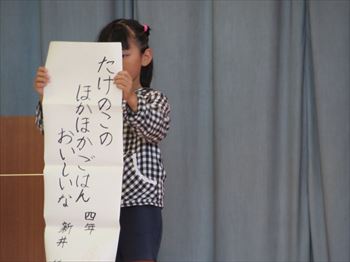 たけのこの
ほかほかごはん
おいしいな
四年 新井